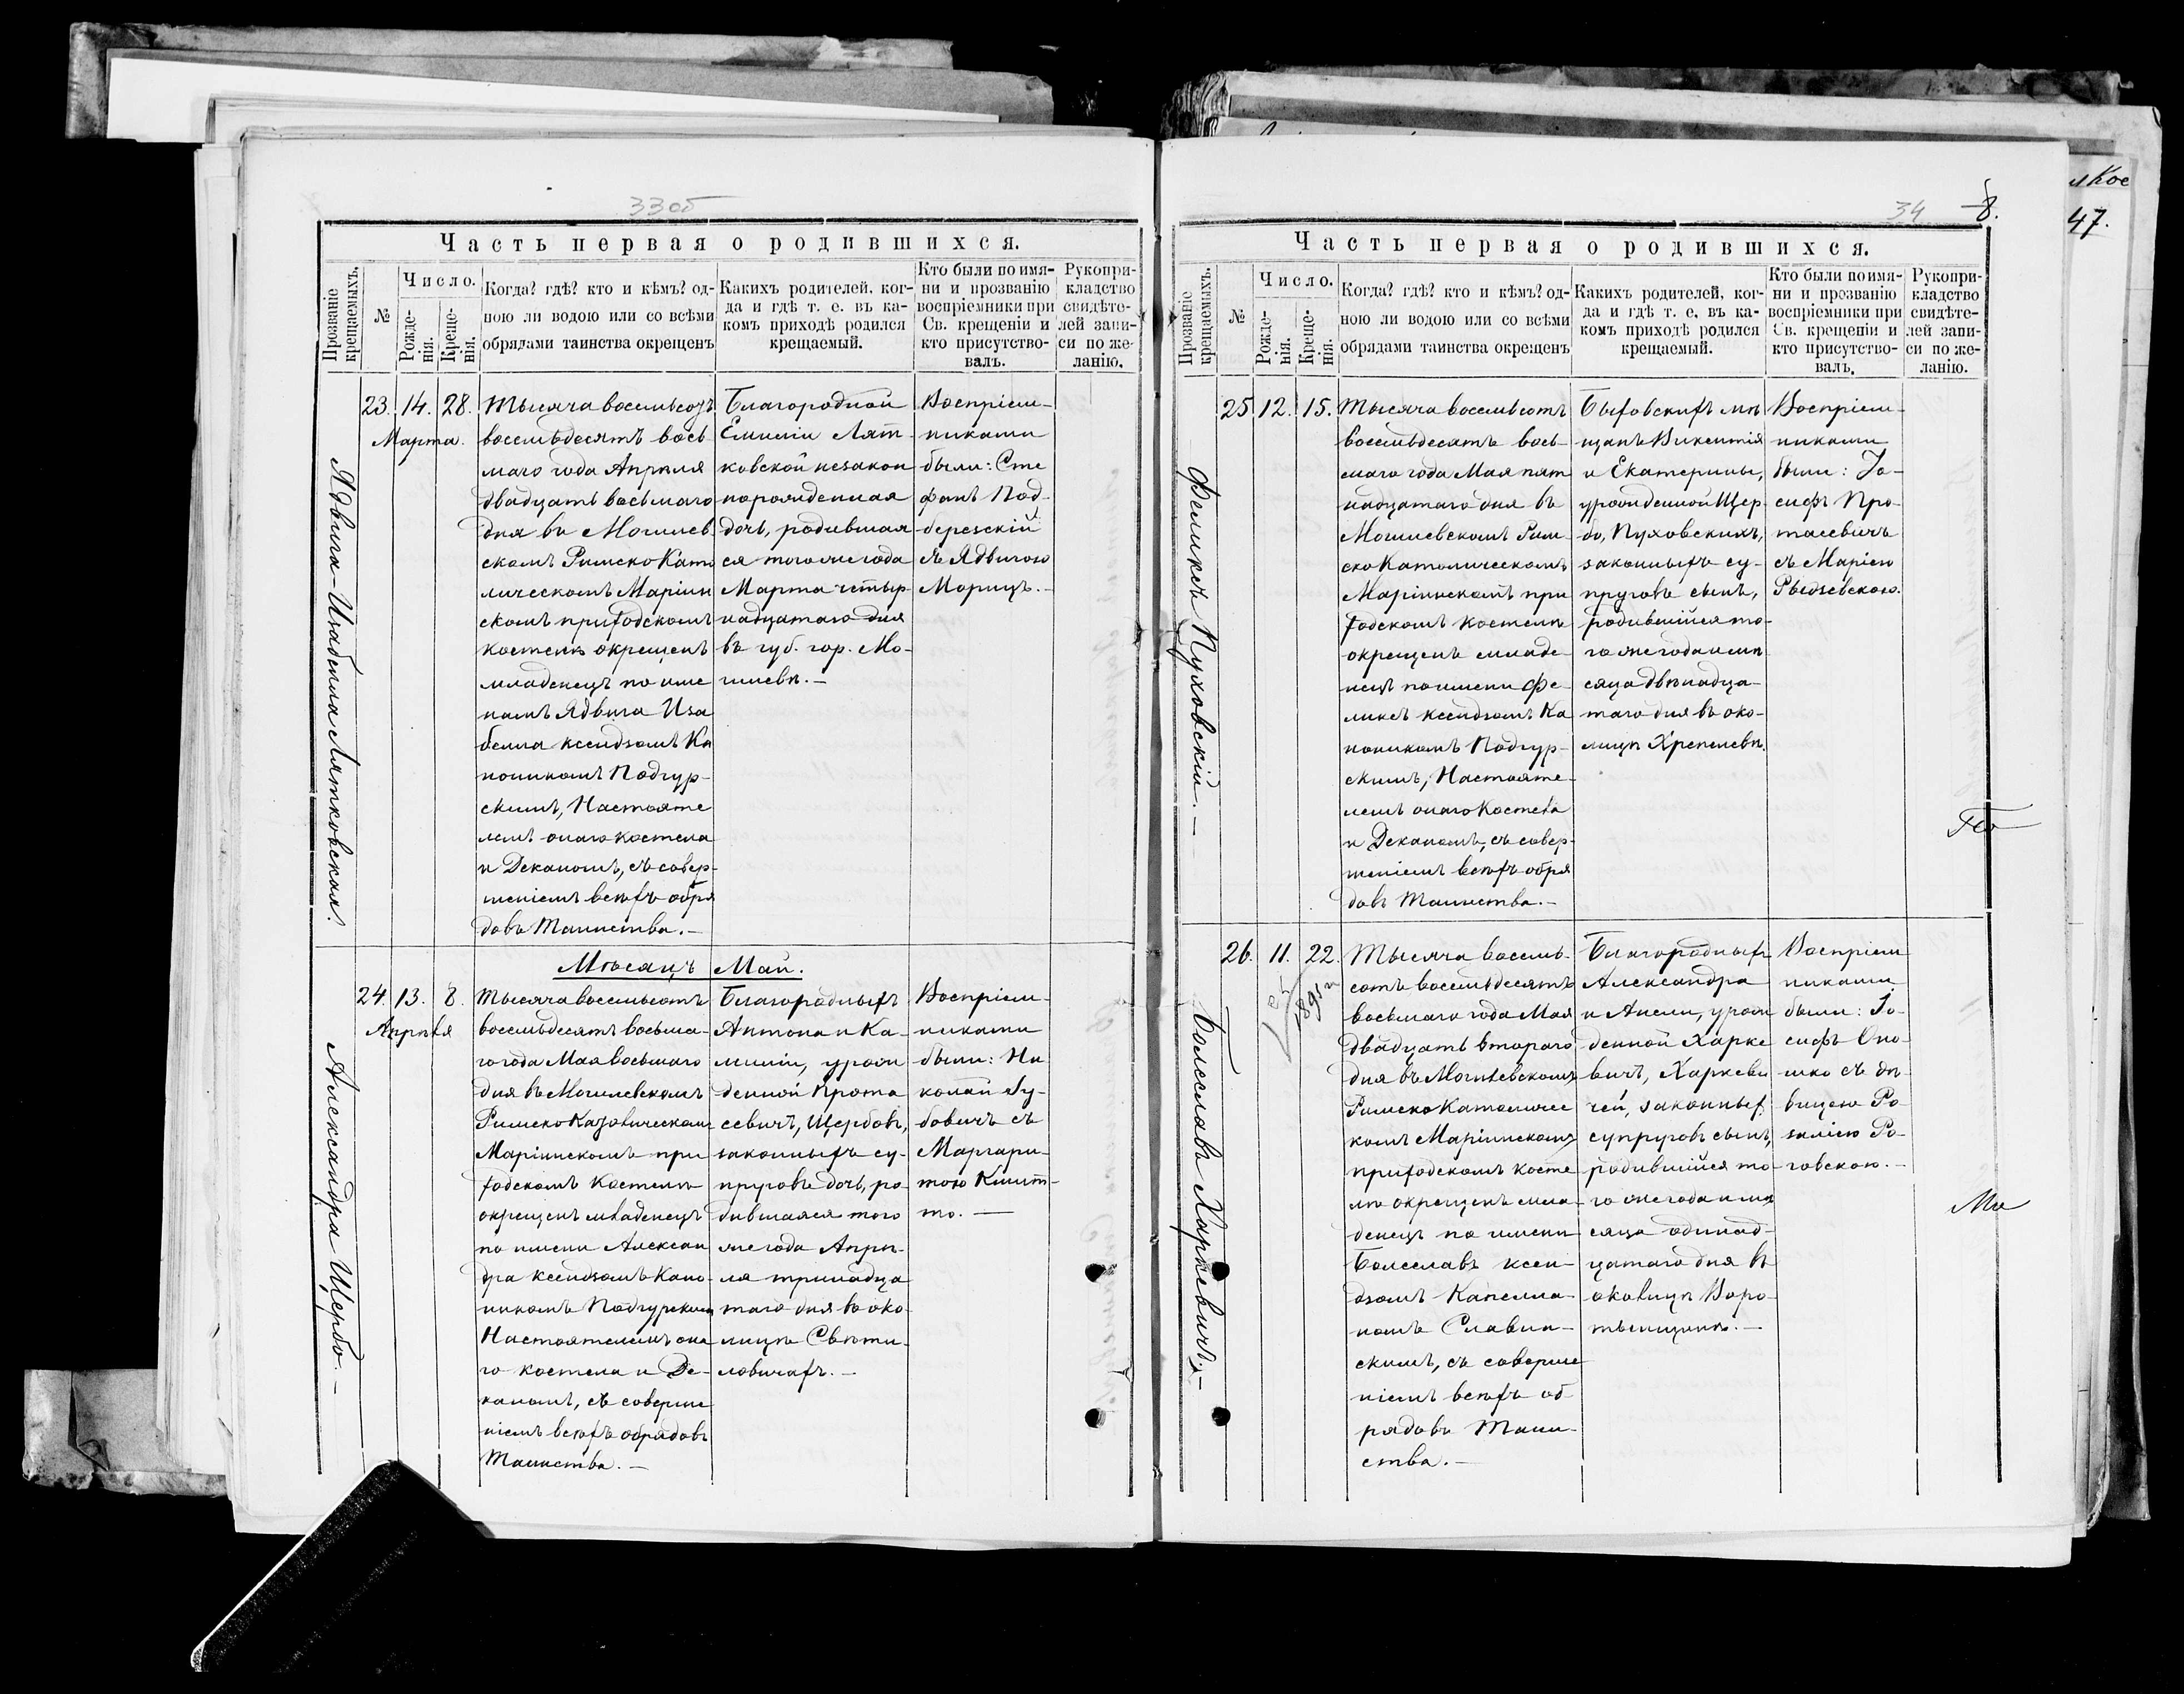 33об
Часть первая о родившихся.
Прозваніе крещаемыхъ.
№
Число.
Рожденія.
Крещенія.
Когда? гдѣ? кто и кѣмъ? од-
ною ли водою или со всѣми
обрядами таинства окрещенъ
Какихъ родителей, ког-
да и гдѣ т. е. въ ка-
комъ приходѣ родился
крещаемый.
Кто были по имя-
ни и прозванію
воспріемники при
Св. крещеніи и
кто присутство-
валъ.
Рукопри-
кладство
свидѣте-
лей запи-
си по же-
ланію.
Ядвига-Изабелла Лятковская.
23. 14. 28.
Марта.
Тысяча восемьсотъ
восемьдесятъ вось
маго года Апрѣля
двадцать восьмаго
дня въ Могилев
скомъ РимскоКато
лическомъ Маріин
скомъ приходскомъ
костелѣ окрещенъ
младенецъ по име
намъ Ядвига Иза
белла ксендзомъ Ка
ноникомъ Подгур-
скимъ, Настояте
лемъ онаго костела
и Деканомъ, съ совер-
шеніемъ всѣхъ обря
довъ Таинства.—
Благородной
Емиліи Лят-
ковской незакон
норожденная
дочь, родившая
ся того же года
Марта четыр-
надцатаго дня
въ губ. гор. Мо-
гилевѣ.—
Воспріем-
никами
были: Сте
фанъ Под-
березскій
съ Ядвигою
Морицъ.—
Мѣсяцъ Май.
Александра Щербо.—
24. 13. 8.
Апрѣля
Тысяча восемьсотъ
восемьдесятъ восьма-
го года Мая восьмаго
дня въ Могилевскомъ
РимскоКатолическомъ
Маріинскомъ при
ходскомъ костелѣ
окрещенъ младенецъ
по имени Алексан
дра ксендзомъ Кано-
никомъ Подгурскимъ
Настоятелемъ она
го костела и Де-
каномъ, съ соверше
ніемъ всѣхъ обрядовъ
Таинства.—
Благородныхъ
Антона и Ка-
миліи, урож
денной Прота
севичъ, Щербовъ,
законныхъ су-
пруговъ дочь, ро-
дившаяся того
же года Апрѣ-
ля тринадца
таго дня въ око-
лицѣ Свѣти-
ловичахъ.—
Воспріем-
никами
были: Ни
колай Гу-
бовичъ съ
Маргари-
тою Кмит-
то.—
34 8.
Часть первая о родившихся.
Прозваніе крещаемыхъ.
№
Число.
Рожденія.
Крещенія.
Когда? гдѣ? кто и кѣмъ? од-
ною ли водою или со всѣми
обрядами таинства окрещенъ
Какихъ родителей, ког-
да и гдѣ т. е. въ ка-
комъ приходѣ родился
крещаемый.
Кто были по имя-
ни и прозванію
воспріемники при
Св. крещеніи и
кто присутство-
валъ.
Рукопри-
кладство
свидѣте-
лей запи-
си по же-
ланію.
Феликсъ Пуховскій.—
25. 12. 15.
Тысяча восемьсотъ
восемьдесятъ вось-
маго года Мая пят
надцатаго дня въ
Могилевскомъ Рим-
скоКатолическомъ
Маріинскомъ при
ходскомъ костелѣ
окрещенъ младе-
нецъ по имени Фе-
ликсъ ксендзомъ Ка
ноникомъ Подгур-
скимъ, Настояте-
лемъ онаго Костела
и Деканомъ, съ совер-
шеніемъ всѣхъ обря
довъ Таинства.—
Быховскихъ мѣ
щанъ Викентія
и Екатерины,
урожденной Щер-
бо, Пуховскихъ,
законныхъ су-
пруговъ сынъ,
родившійся то-
го же года и мѣ
сяца двѣнадца-
таго дня въ око-
лицѣ Хрепелевѣ.
Воспріем-
никами
были: Іо-
сифъ Про-
тасевичъ
съ Маріею
Рводзевскою.
Болеславъ Харкевичъ.—
26. 11. 22.
Тысяча восемь-
сотъ восемьдесятъ
восьмаго года Мая
двадцать втораго
дня въ Могилевскомъ
РимскоКатоличес
комъ Маріинскомъ
приходскомъ косте
лѣ окрещенъ мла-
денецъ по имени
Болеславъ ксен-
дзомъ Капелла-
номъ Славин-
скимъ, съ соверше
ніемъ всѣхъ об
рядовъ Таин-
ства.—
Благородныхъ
Александра
и Анели, урож
денной Харке
вичъ, Харкеви
чей, законныхъ
супруговъ сынъ,
родившійся то-
го же года и мѣ
сяца одинад-
цатаго дня въ
околицѣ Воро-
тыщинѣ.—
Воспріем
никами
были: Іо-
сифъ Оно-
шко съ дѣ-
вицею Ро-
заліею Ро-
говскою.—
47.